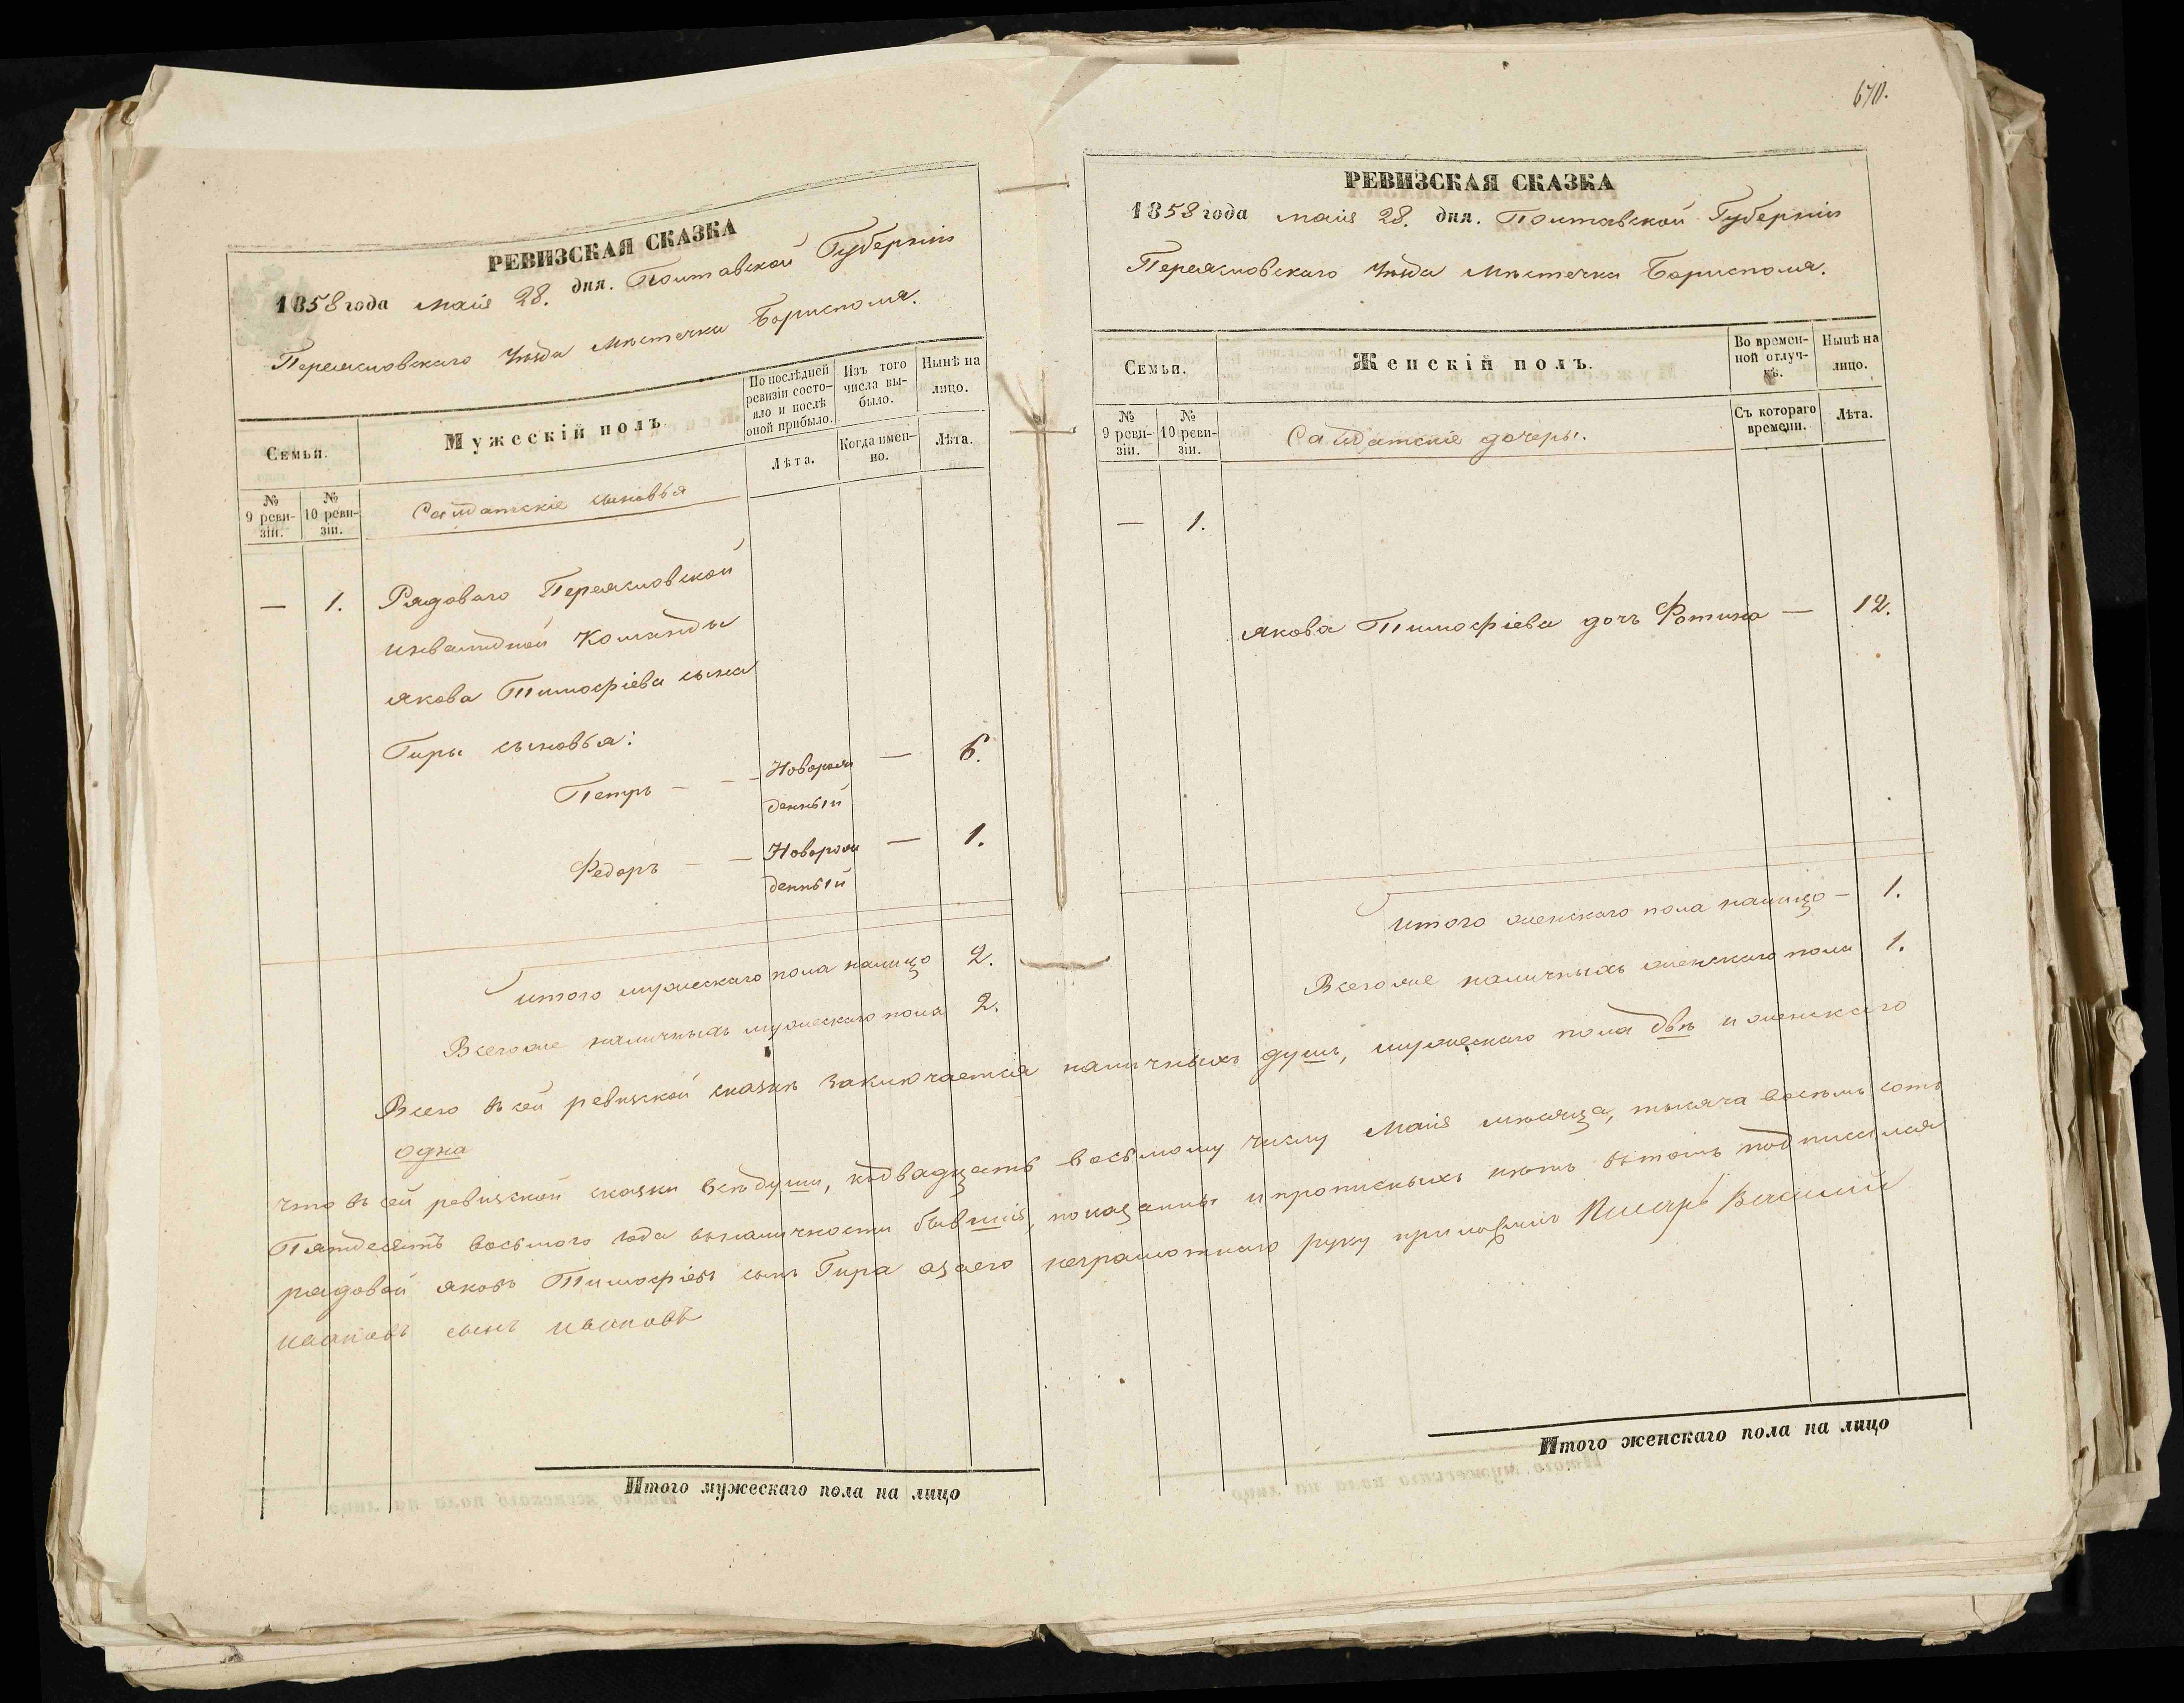 670.
РЕВИЗСКАЯ СКАЗКА
1858 года маія 28. дня. Полтавской Губерніи
Переясловскаго Уѣзда Мѣстечка Борисполя.
Семьи.
Мужескій полъ
По послѣдней ревизіи состояло и послѣ оной прибыло.
Изъ того числа выбыло.
Нынѣ на лицо.
№ 9 ревизіи.
№ 10 ревизіи.
Солдатскіе сыновья
Лѣта.
Когда именно.
Лѣта.
— 1. Рядоваго Переясловской
инвалидной Команды
якова Тимофіева сына
Гиры сыновья:
Петръ — — Новорож — 6.
денный
Федоръ — — Новорож — 1.
денный
итого мужескаго пола налицо 2.
Всегоже наличныхъ мужескаго пола 2.
РЕВИЗСКАЯ СКАЗКА
1858 года маія 28. дня. Полтавской Губерніи
Переясловскаго Уѣзда Мѣстечка Борисполя.
Семьи.
Женскій полъ.
Во временной отлучкѣ.
Нынѣ на лицо.
№ 9 ревизіи.
№ 10 ревизіи.
Солдатскіе дочери.
Съ котораго времени.
Лѣта.
— 1.
якова Тимофіева дочь Фотина — 12.
итого женскаго пола налицо — 1.
Всегоже наличныхъ женскаго пола 1.
Всего въ сей ревизской сказкѣ заключается наличныхъ душъ, мужескаго пола двѣ и женскаго
одна
что въ сей ревизской сказки всѣ души, къ двадцать восьмому числу Маія мѣсяца, тысяча восемь сотъ
Пятдесятъ восьмого года въ наличности бывшія, показанны и прописныхъ нѣтъ вътомъ подписался
рядовой яковъ Тимофіевъ сынъ Гира азаего неграмотнаго руку приложилъ Писарь Василий
ивановъ сынъ ивановъ
Итого мужескаго пола на лицо
Итого женскаго пола на лицо